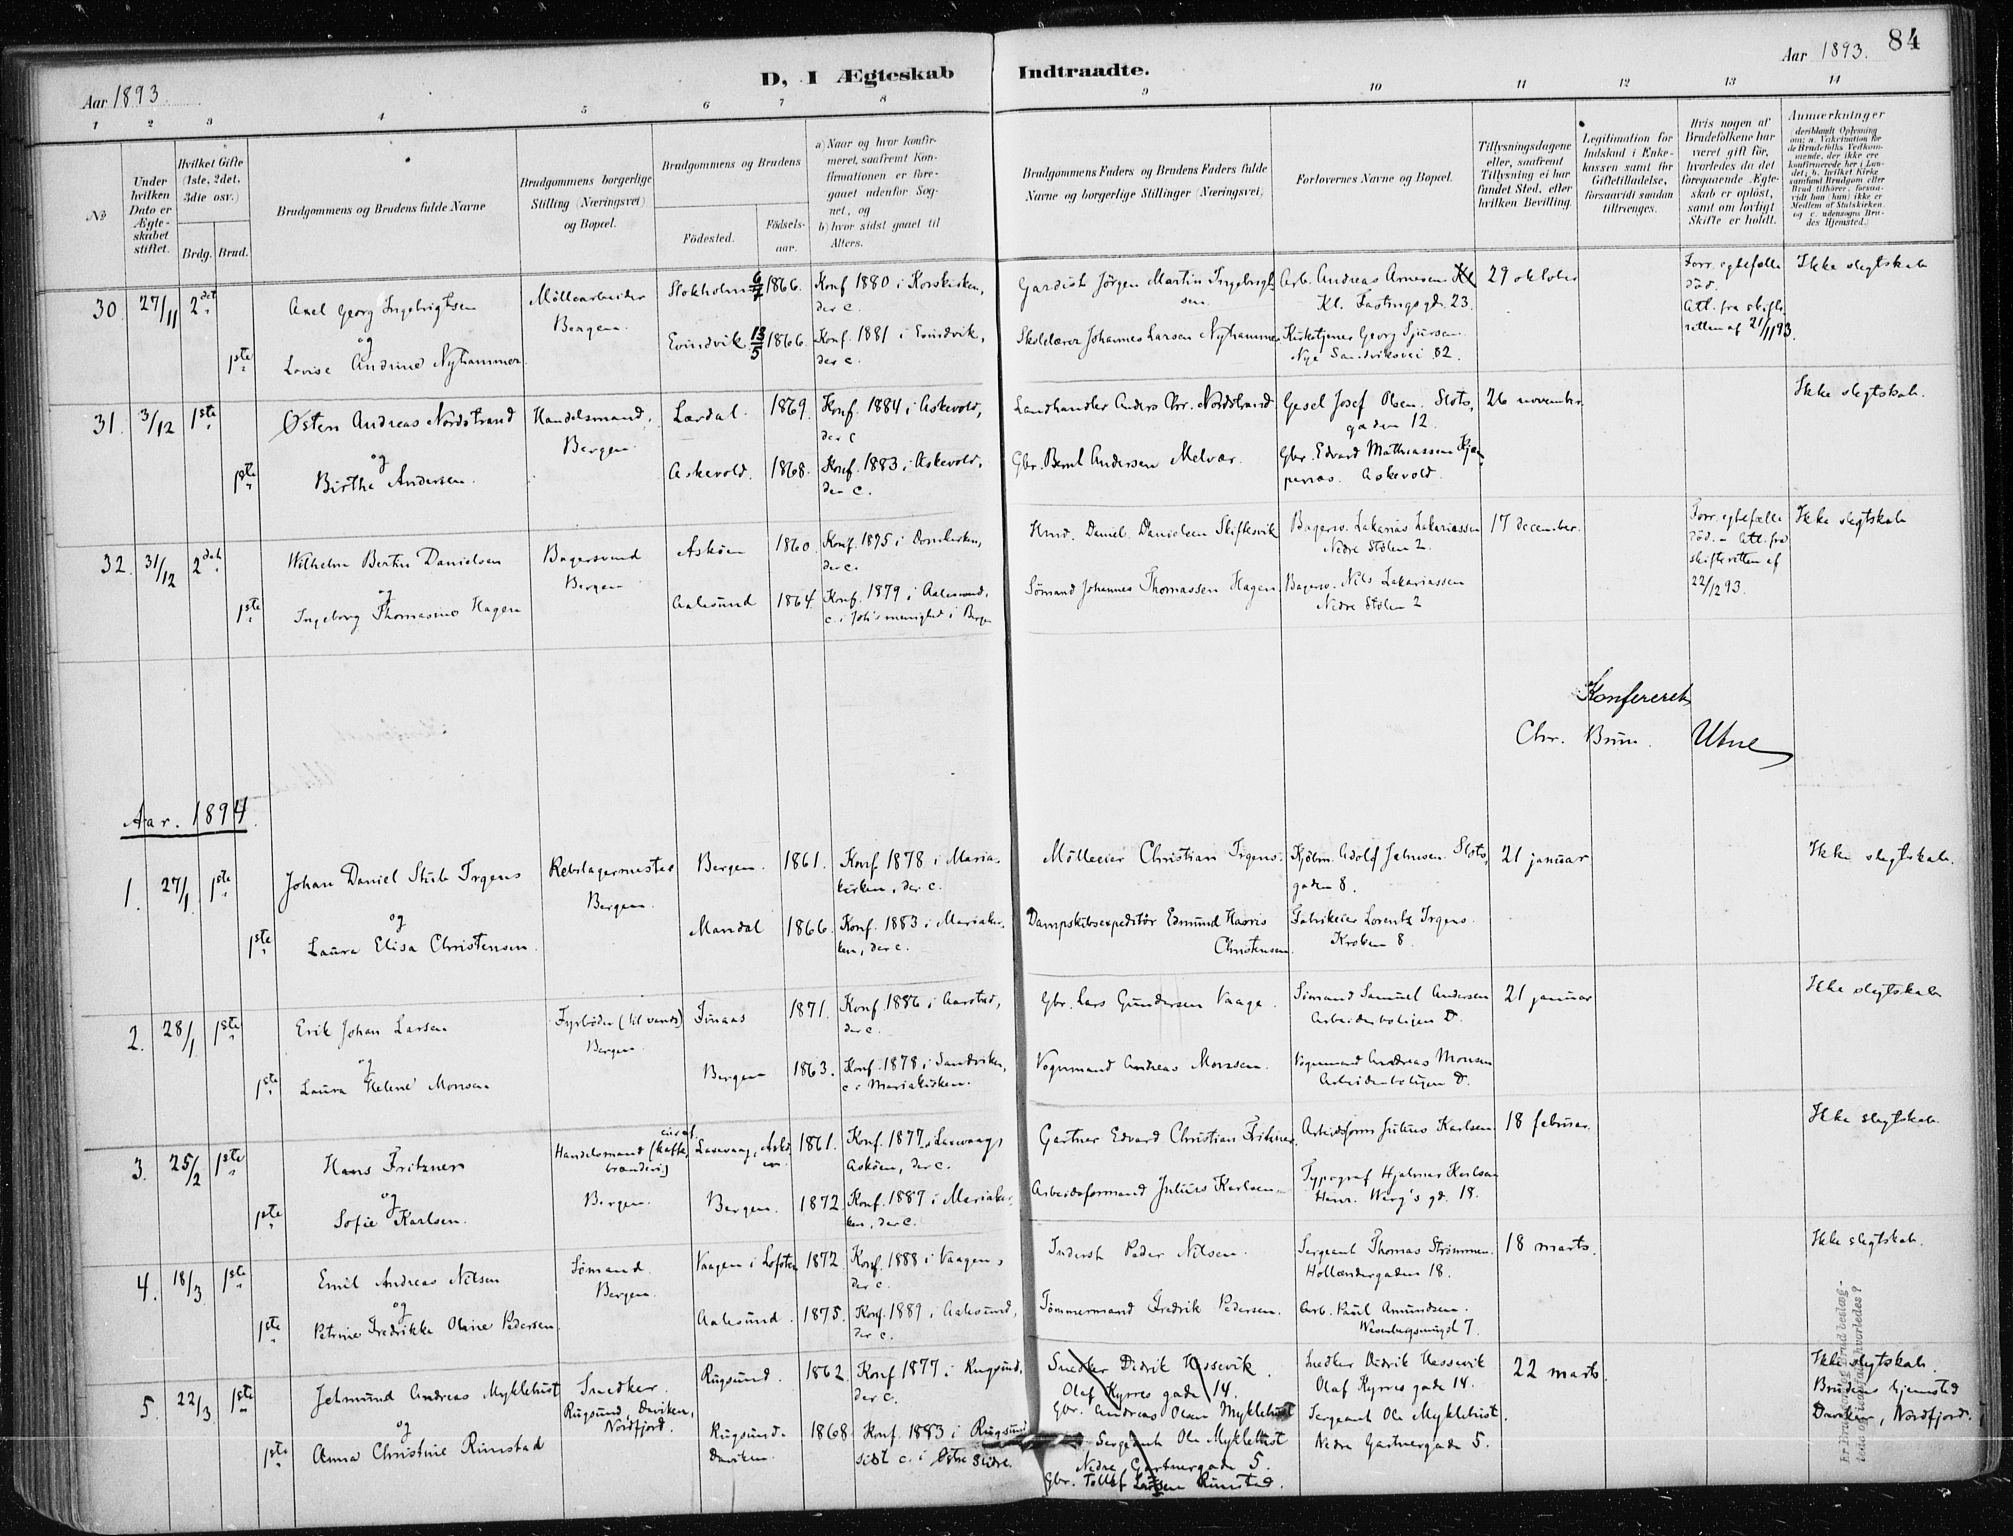 Aar 1893
D, I Ægteskab Indtraadte.
Aar 1893. 84
1 2 3 4 5 6 7 8 9 10 11 12 13 14
No
Under hvilken Dato er Ægteskabet stiftet.
Hvilket Gifte (1ste, 2det, 3die osv.)
Brdg. Brud.
Brudgommens og Brudens fulde Navne
Brudgommens borgerlige Stilling (Næringsvei) og Bopæl.
Brudgommens og Brudens
Fødested. Fødselsaar.
a) Naar og hvor konfirmeret, saafremt Konfirmationen er foregaaet udenfor Sognet, og
b) hvor sidst gaaet til Alters.
Brudgommens Faders og Brudens Faders fulde Navne og borgerlige Stillinger (Næringsvei)
Forlovernes Navne og Bopæl.
Tillysningsdagene eller, saafremt Tillysning ei har fundet Sted, efter hvilken Bevilling.
Legitimation for Indskud i Enkekassen samt for Giftetilladelse, forsaavidt saadan tiltrænges.
Hvis nogen af Brudefolkene har været gift før, hvorledes da det foregaaende Ægteskab er opløst, samt om lovligt Skifte er holdt.
Anmærkninger
30. 27/11 2det Axel Georg Ingebrigtsen Møllearbeider Bergen. Stokholm 6/7 1866. Konf 1880 i Korskirken, der c.
Gardist Jørgen Martin Ingebrigtsen Arb. Andreas Arnesen Kl. Fastings gd. 23. 29 oktober
Forr. egtefælle død. Att. fra skifteretten af 21/11 93. Ikke slegtskab
og
1ste Lovise Andrine Nyhammer Evindvik 13/5 1866. Konf. 1881 i Evindvik, der c.
Skolelærer Johannes Larsen Nyhammer Kirketjener Georg Sjursen Nye Sandviksvei 82.
31. 3/12 1ste Østen Andreas Nordstrand Handelsmand, Bergen. Lærdal. 1869. Konf. 1884 i Askevold, der c
Landhandler Anders Chr. Nordstrand Gesel Josef Olsen. Slotsgaden 12. 26 november Ikke slegtskab.
og
1ste Birthe Andersen. Askevold. 1868. Konf. 1883 i Askevold, der c.
Gbr. Bernt Andersen Melvær. Gbr. Edvard Mathiassen Askevold.
32. 31/12 2det Wilhelm Bertin Danielsen Bagersvend Bergen Askøen 1860. Konf. 1875 i Domkirken, der c.
Hmd. Daniel Danielsen Skiftesvik Bagersv. Zakarias Zakariassen Nedre Stølen 2. 17 december.
Forr. egtefælle død. - Att. fra skifteretten af 22/12 93. Ikke slegtskab
og
1ste Ingeborg Thomasine Hagen Aalesund 1864. Konf. 1879 i Aalesund, c. i Joh's menighed i Bergen
Sømand Johannes Thomassen Hagen Bagersv. Nils Zakariassen Nedre Stølen 2
Konfereret
Chr. Bruun. Utne
Aar. 1894.
1. 27/1 1ste Johan Daniel Stub Irgens Rebslagermester Bergen. Bergen. 1861. Konf 1878 i Mariakirken, der c.
Mølleeier Christian Irgens. Kjøbm. Adolf Jahnsen. Slotsgaden 8. 21 januar Ikke slegtskab.
og
1ste Laura Elisa Christensen. Mandal 1866. Konf. 1883 i Mariakirken, der c.
Dampskibsexpeditør Edmund Harris Christensen Fabrikeier Lorentz Irgens. Kroken 8.
2. 28/1 1ste Erik Johan Larsen Fyrbøder (til vands) Bergen. Finaas 1871. Konf. 1886 i Aarstad, der c.
Gbr. Lars Gundersen Vaage. Sømand Samuel Andersen Arbeiderboligen D. 21 januar Ikke slegtskab
og
1ste Laura Helene Monsen Bergen 1863. Konf. 1878 i Sandviken, c. i Mariakirken.
Vognmand Andreas Monsen. Vognmand Andreas Monsen Arbeiderboligen D.
3. 25/2 1ste Hans Fritzner Handelsmand (kaffebrænderi) Bergen. Laxevaag, Askøen. 1861. Konf. 1877 i Laxevaag, Askøen, der c.
Gartner Edvard Christian Fritzner. Arbeidsform Julius Karlsen 18 februar. Ikke slegtskab.
og
1ste Sofie Karlsen. Bergen. 1872. Konf. 1887 i Mariakirken, der c.
Arbeidsformand Julius Karlsen. Typograf Hjalmar Karlsen Henr. Wergs gd. 18.
4. 18/3 1ste Emil Andreas Nilsen Sømand Bergen. Vaagen i Lofoten 1872. Konf. 1888 i Vaagen, der c.
Inderst Peder Nilsen. Sergeant Thomas Strømmen. Hollændergaden 18. 18 marts. Ikke slegtskab.
og
1ste Petrine Fredrikke Oline Pedersen Aalesund. 1875. Konf. 1889 i Aalesund, der c.
Tømmermand Fredrik Pedersen. Arb. Paul Amundsen. Wesenbergsmugd 7.
5. 22/3 1ste Jetmund Andreas Myklebust Snedker. Rugsund, Daviken, Nordfjord. Rugsund. 1862. Konf 1877 i Rugsund, der c.
Snedker Didrik Hessevik. Olaf Kyrres gade 14.
Gbr. Andreas Olsen Myklebust
Snedker Didrik Hessevik Olaf Kyrres gade 14. 22 marts. Ikke slegtskab. Brudens hjemsted Daviken, Nordfjord.
og
1ste Anna Christine Rimstad Rugsund. Daviken. 1868 Konf. 1883 i Rugsund sidst c. i Østre Slidre.
Sergeant Ole Myklebust Nedre Gartnergade 5.
Gbr. Tollef Larsen Rimstad.
Sergeant Ole Myklebust. Nedre Gartnergade 5.
Er Brudgom og Brud beslægtede og i saafald hvorledes?